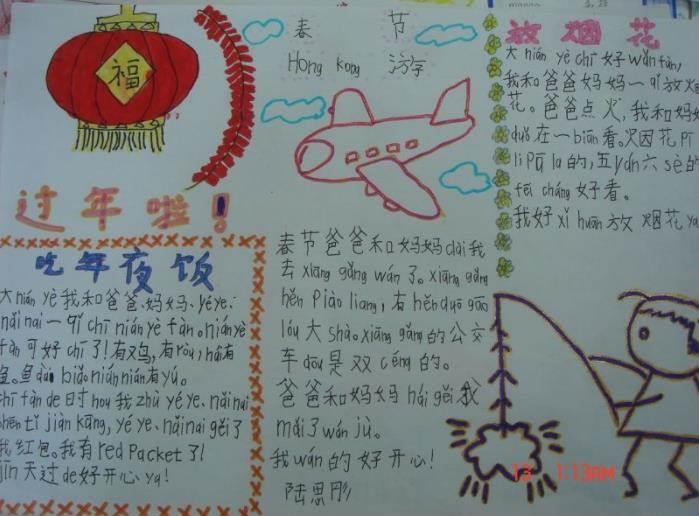 福
春 节
Hong kong 游
过年啦!
吃年夜饭
大nián yè我和爸爸、妈妈、yéye、
nǎinai一qǐ chī nián yè fàn。nián yè
fàn可好chī了!有鸡,有ròu,hái有
鱼。鱼dài biǎo nián nián有yú。
chī fàn de时hou我zhù yé ye、nǎinai
shēn tǐ jiàn kāng,yé ye、nǎinai gěi了
我红包。我有red Packet了!
jīn天过de好开心ya!
春节爸爸和妈妈dài我
去xiāng gǎng wán了。xiāng gǎng
hěn Piào liang,有hěn duō gāo
lóu大shà。xiāng gǎng的公交
车dōu是双céng的。
爸爸和妈妈hái gěi我
mǎi了wán jù。
我wán的好开心!
陆思彤
放烟花
大nián yè chī好wǎn fàn,
我和爸爸妈妈一qǐ放烟
花。爸爸点火,我和妈妈
duǒ在一biān看。烟花Pī
lī Pū la的,五yán六sè的
fēi cháng好看。
我好xǐ huān放烟花ya
13 1:13AM